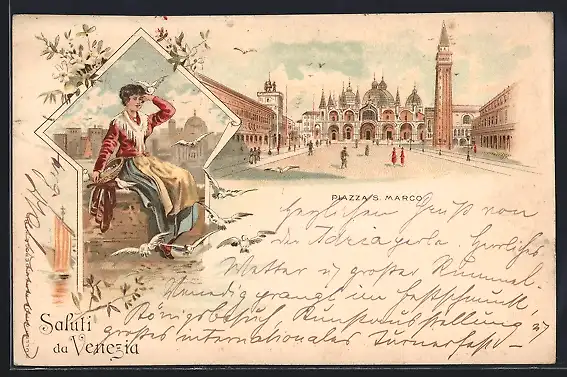 PIAZZA S. MARCO
Saluti
da Venezia
Herzlichen Gruß von
der Adriaperle. Herrliches
Wetter u großer Rummel.
Venedig prangt im Festschmuck,
Königsbesuch Kunstausstellung u
großes internationales Turnerfest –